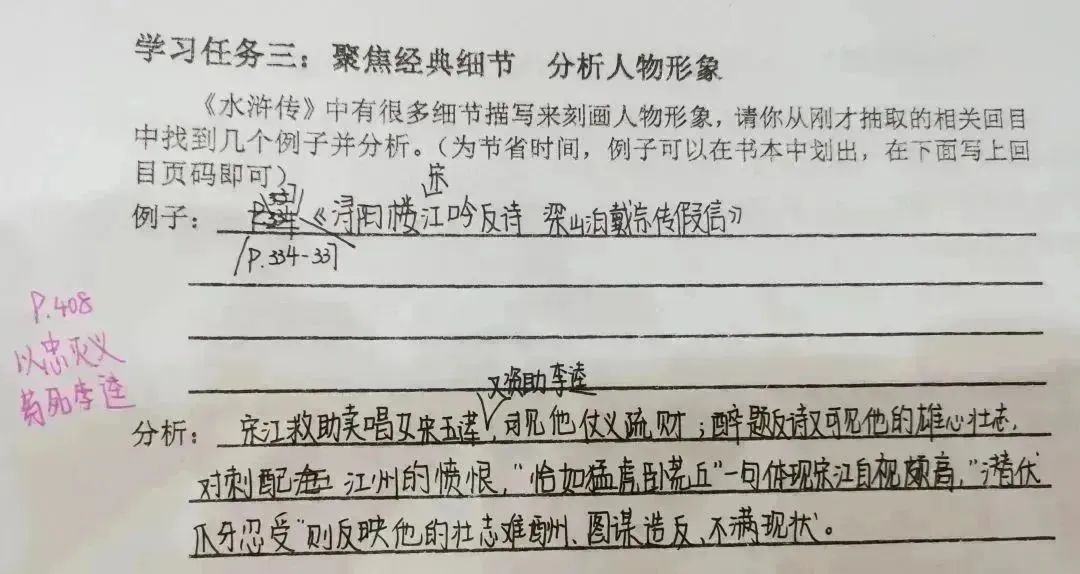 学习任务三：聚焦经典细节　分析人物形象
《水浒传》中有很多细节描写来刻画人物形象，请你从刚才抽取的相关回目
中找到几个例子并分析。（为节省时间，例子可以在书本中划出，在下面写上回
目页码即可）
例子：《浔阳楼宋江吟反诗 梁山泊戴宗传假信》
P.334-337
P.408
以忠灭义
药死李逵
又资助李逵
分析：宋江救助卖唱女宋玉莲，可见他仗义疏财；醉题反诗又可见他的雄心壮志，
对刺配江州的愤恨，"恰如猛虎卧荒丘"一句体现宋江自视颇高，"潜伏
爪牙忍受"则反映他的壮志难酬、图谋造反、不满现状。